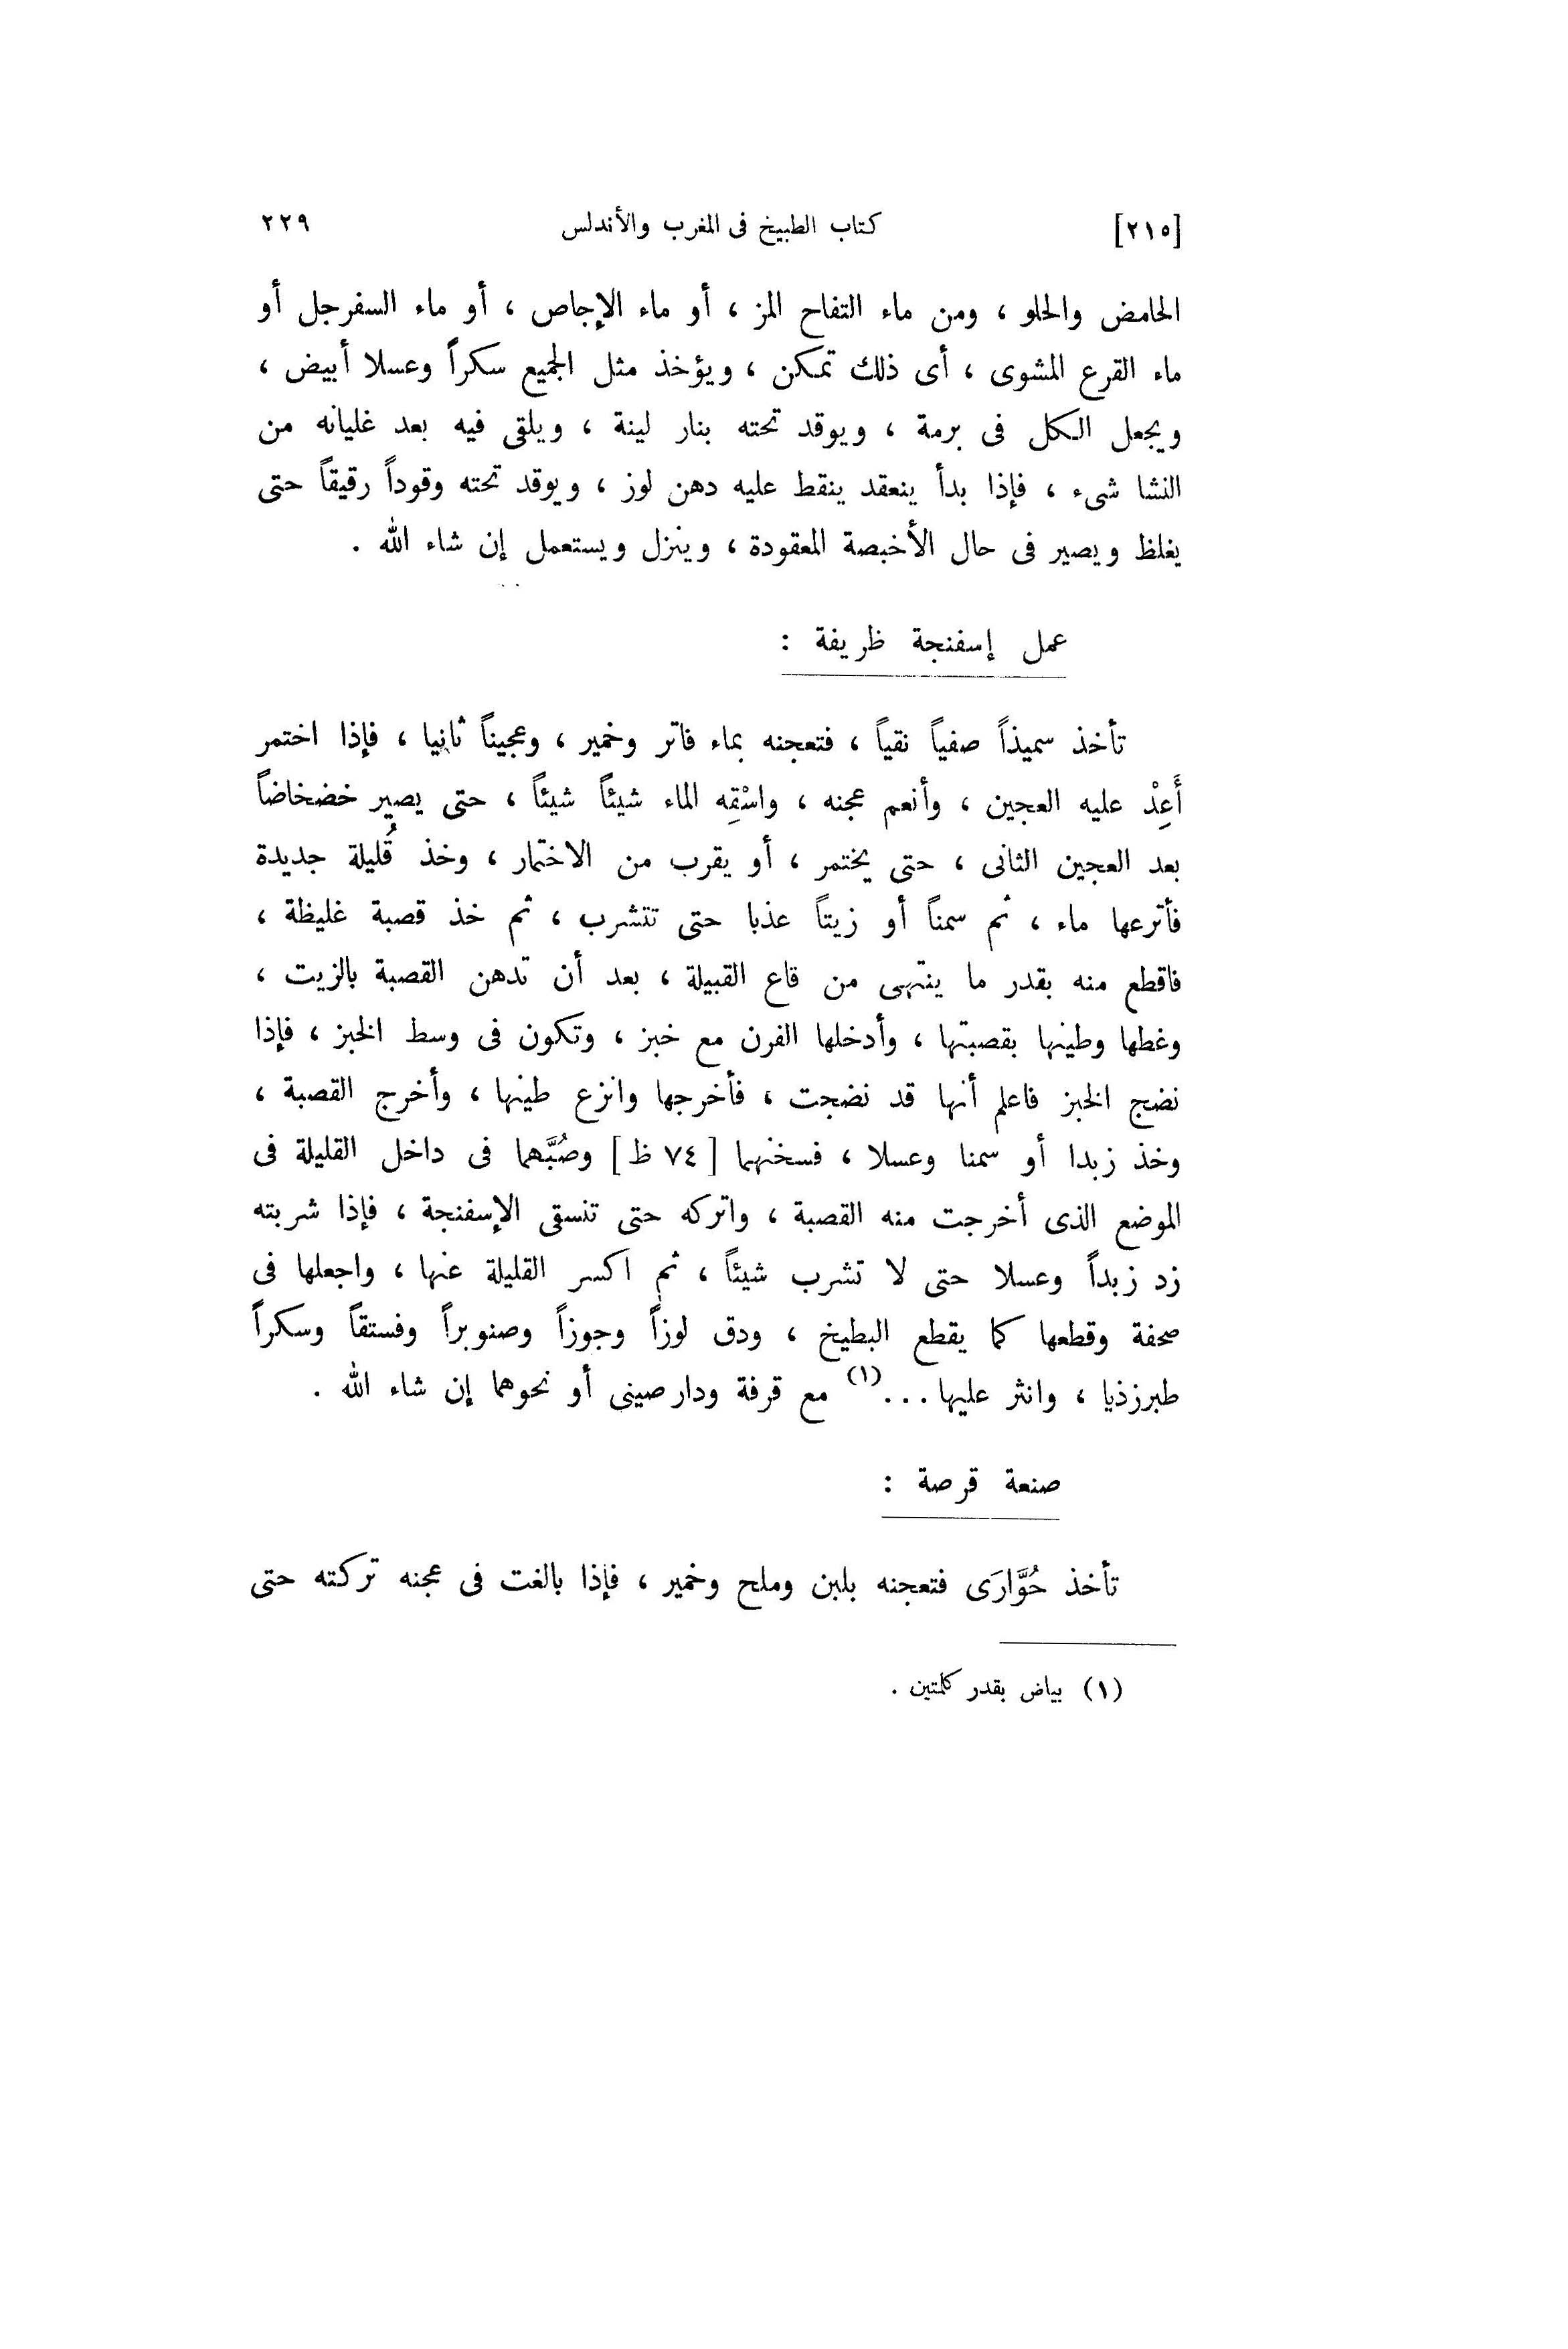 [٢١٥] كتاب الطبيخ فى المغرب والأندلس ٢٢٩
الحامض والحلو ، ومن ماء التفاح المز ، أو ماء الإجاص ، أو ماء السفرجل أو
ماء القرع المشوى ، أى ذلك تمكن ، ويؤخذ مثل الجميع سكراً وعسلا أبيض ،
ويجعل الكل فى برمة ، ويوقد تحته بنار لينة ، ويلقى فيه بعد غليانه من
النشا شىء ، فإذا بدأ ينعقد ينقط عليه دهن لوز ، ويوقد تحته وقوداً رقيقاً حتى
يغلظ ويصير فى حال الأخبصة المعقودة ، وينزل ويستعمل إن شاء الله .
عمل إسفنجة ظريفة :
تأخذ سميذاً صفياً نقياً ، فتعجنه بماء فاتر وخمير ، وعجيناً ثانيا ، فإذا اختمر
أَعِدْ عليه العجين ، وأنعم عجنه ، واسْقِه الماء شيئاً شيئاً ، حتى يصير خضخاضاً
بعد العجين الثانى ، حتى يختمر ، أو يقرب من الاختمار ، وخذ قُليلة جديدة
فأترعها ماء ، ثم سمناً أو زيتاً عذبا حتى تتشرب ، ثم خذ قصبة غليظة ،
فاقطع منه بقدر ما ينتهى من قاع القبيلة ، بعد أن تدهن القصبة بالزيت ،
وغطها وطينها بقصبتها ، وأدخلها الفرن مع خبز ، وتكون فى وسط الخبز ، فإذا
نضج الخبز فاعلم أنها قد نضجت ، فأخرجها وانزع طينها ، وأخرج القصبة ،
وخذ زبدا أو سمنا وعسلا ، فسخنهما [ ٧٤ ظ ] وصُبَّهما فى داخل القليلة فى
الموضع الذى أخرجت منه القصبة ، واتركه حتى تنسقى الإسفنجة ، فإذا شربته
زد زبداً وعسلا حتى لا تشرب شيئاً ، ثم اكسر القليلة عنها ، واجعلها فى
صحفة وقطعها كما يقطع البطيخ ، ودق لوزاً وجوزاً وصنوبراً وفستقاً وسكراً
طبرزذيا ، وانثر عليها ...(١) مع قرفة ودارصينى أو نحوهما إن شاء الله .
صنعة قرصة :
تأخذ حُوَّارَى فتعجنه بلبن وملح وخمير ، فإذا بالغت فى عجنه تركته حتى
(١) بياض بقدر كلمتين .